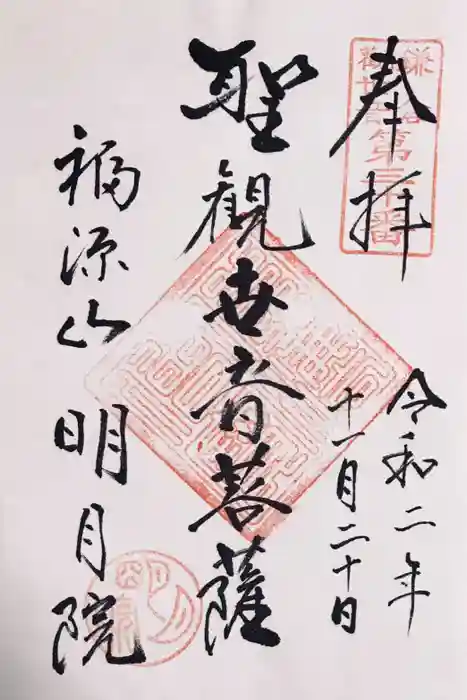 奉拝
令和二年
十一月二十日
聖観世音菩薩
福源山
明月院
第三十番